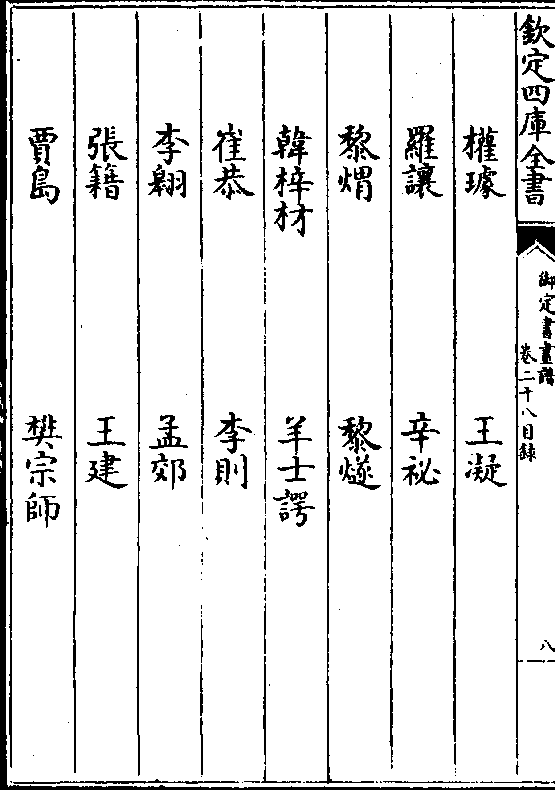 欽定四庫全書
御定書畫譜
卷二十八目録
八
權璩
王凝
羅讓
辛祕
黎煟
黎燧
韓梓材
羊士諤
崔恭
李則
李翱
孟郊
張籍
王建
賈島
樊宗師